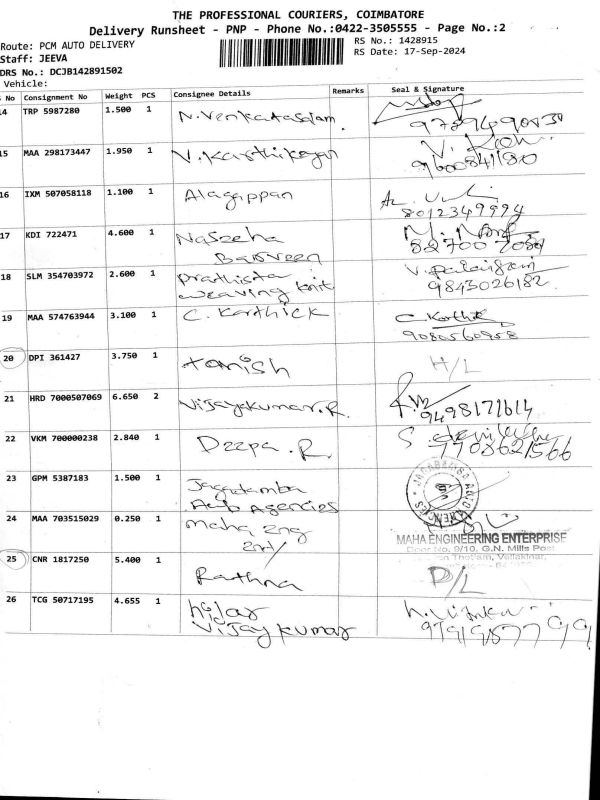 THE PROFESSIONAL COURIERS, COIMBATORE
Delivery Runsheet - PNP - Phone No.:0422-3505555 - Page No.:2
Route: PCM AUTO DELIVERY
RS No.: 1428915
Staff: JEEVA
RS Date: 17-Sep-2024
DRS No.: DCJB142891502
Vehicle:
No Consignment No Weight PCS Consignee Details Remarks Seal & Signature
14 TRP 5987280 1.500 1 N. Venkatasalam.
15 MAA 298173447 1.950 1 V. Karthikeyan
9600841180
16 IXM 507058118 1.100 1 Alagippan
8012349994
17 KDI 722471 4.600 1 Naseeha
Barveen
18 SLM 354703972 2.600 1 Prathista
weaving knit
9843026182
19 MAA 574763944 3.100 1 C. Karthick C. Karthik
9080560958
20 DPI 361427 3.750 1 tanish H/L
21 HRD 7000507069 6.650 2 Vijayakumar. R.
9498171614
22 VKM 700000238 2.840 1 Deepa. R.
7708621566
23 GPM 5387183 1.500 1 Jagatamba
Aub Agencies
24 MAA 703515029 0.250 1 Maha Eng
Ent/
MAHA ENGINEERING ENTERPRISE
Door No. 9/10, G.N. Mills Post
25 CNR 1817250 5.400 1 Rathna D/L
26 TCG 50717195 4.655 1 hijar
Vijay kumar